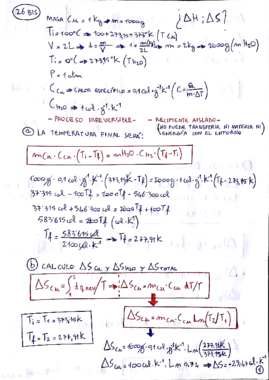 26 BIS
MASA Cu = 1 kg → m = 1000g
¿ΔH; ΔS?
Ti = 100ºC → 100 + 273,15 = 373ºK (T Cu)
V = 2L → d = m/V → 1 = m(kg)/2L → m = 2kg → 2000g (m H2O)
Ti = 0ºC → 273,15ºK (T H2O)
P = 1 atm
C Cu → CALOR ESPECÍFICO = 0,1 cal·g⁻¹·K⁻¹ (C = Q/m·ΔT)
C H2O → 1 cal·g⁻¹·K⁻¹
- PROCESO IRREVERSIBLE - RECIPIENTE AISLADO -
(NO PUEDE TRANSFERIR NI MATERIA NI ENERGÍA CON EL ENTORNO)
a) LA TEMPERATURA FINAL SERÁ:
mCu · CCu · (Ti - Tf) = mH2O · CH2O · (Tf - Ti)
1000g · 0,1 cal·g⁻¹·K⁻¹ · (373,15K - Tf) = 2000g · 1 cal·g⁻¹·K⁻¹ (Tf - 273,15K)
37'315 cal - 100 Tf = 2000 Tf - 546'300 cal
37'315 cal + 546'300 cal = 2000 Tf + 100 Tf
583'615 cal = 2100 Tf (cal·K⁻¹)
Tf = 583'615 cal / 2100 cal·K⁻¹ → Tf = 277,91 K
b) CÁLCULO ΔSCu Y ΔSH2O Y ΔSTOTAL
ΔSCu = ∫₁² dq rev/T → ΔSCu = mCu · CCu · dT/T
T1 = Ti = 373,15K
T2 = Tf = 277,91K
ΔSCu = mCu · CCu · Ln(T2/T1)
ΔSCu = 1000g · 0,1 cal·g⁻¹K⁻¹ · Ln(277,91K/373,15K)
ΔSCu = 100 cal·K⁻¹ · Ln 0,74 →
1